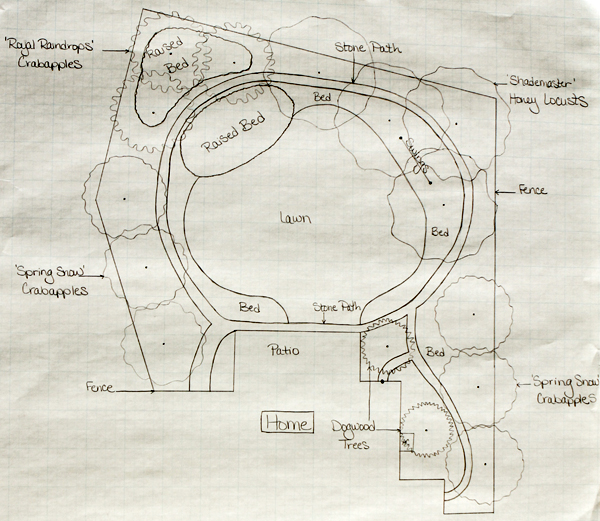 'Royal Raindrops'
Crabapples
Raised
Bed
Stone Path
'Shademaster'
Honey Locusts
Bed
Raised Bed
Swings
Fence
Lawn
Bed
'Spring Snow'
Crabapples
Bed
Stone Path
Patio
Bed
Fence
'Spring Snow'
Crabapples
Home
Dogwood
Trees